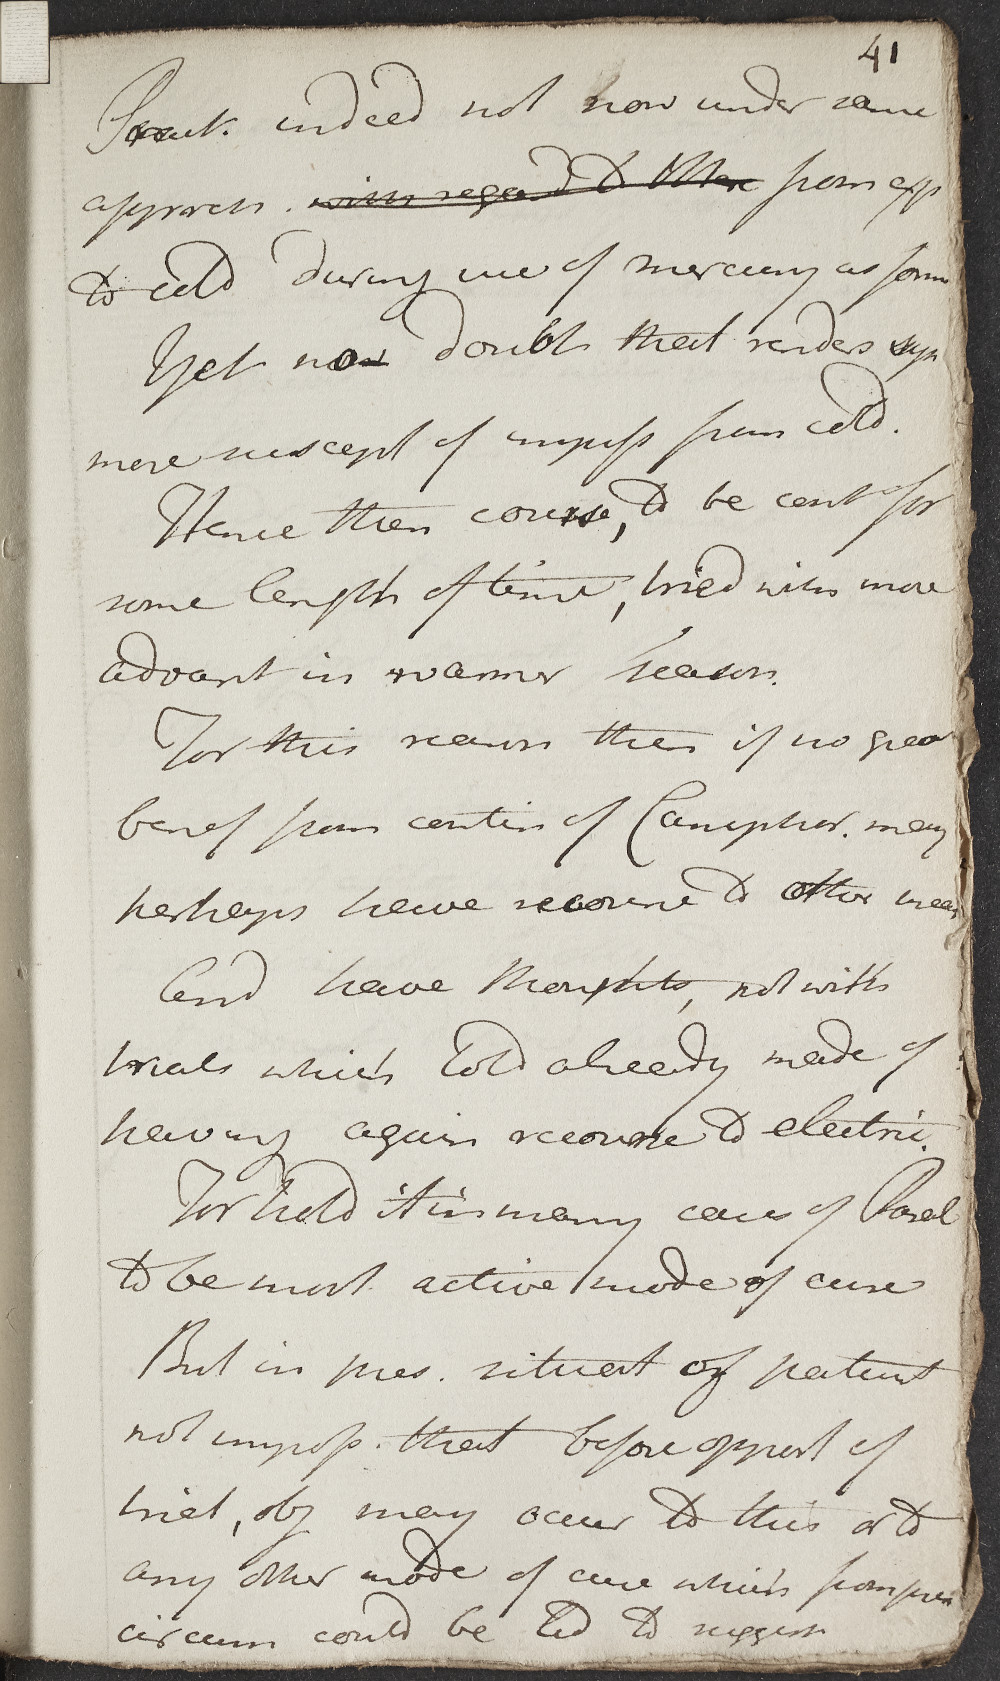 41
Pract. indeed not now under same
appreh. with regard to other from exp
to cold during use of mercury as form
Yet no doubt that renders syp
more suscept of impress from cold.
Hence then course, to be cont for
some length of time, tried with more
advant in warmer season.
For this reason then if no great
benef from contin of Camphor. may
perhaps have recourse to other mean
And have thoughts, notwith
trials which told already made of
having again recourse to electric.
For hold it in many cases of Paral
to be most active mode of cure
But in pres. situat of patient
not imposs. that before opport of
trial, obj may occur to this or to
any other mode of cure which from pres
circum could be led to suggest